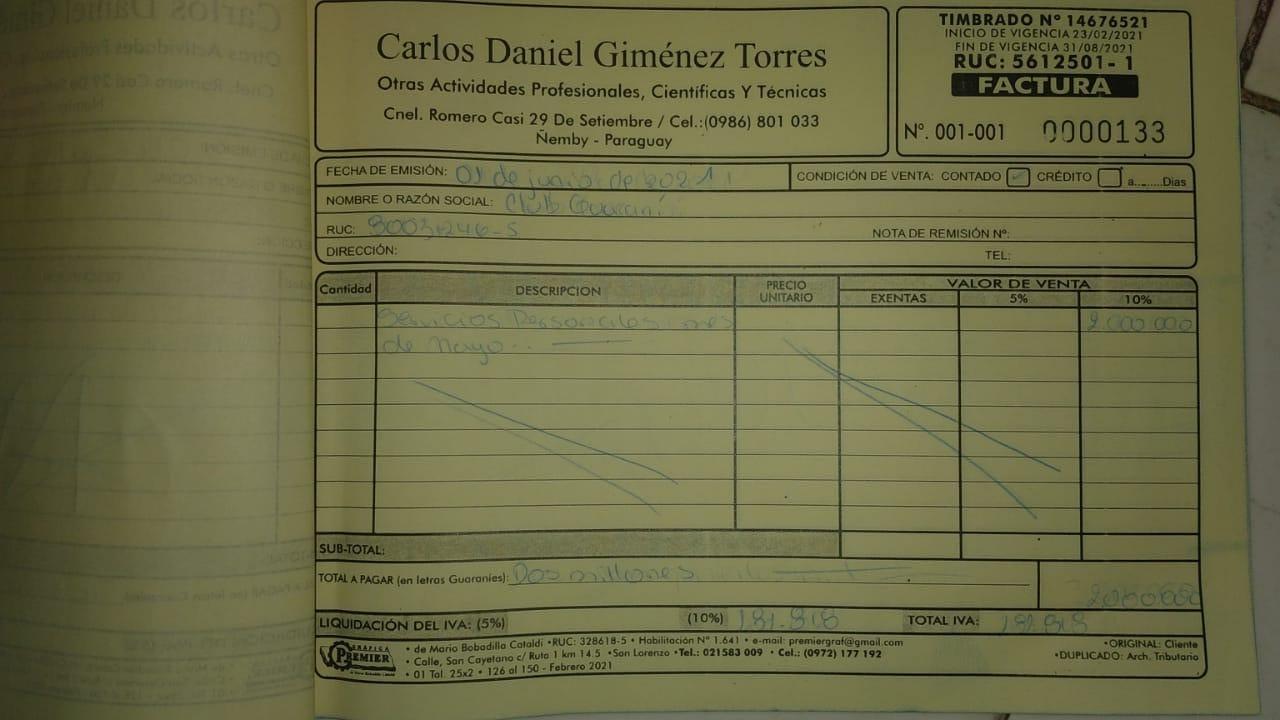 Carlos Daniel Giménez Torres
Otras Actividades Profesionales, Científicas Y Técnicas
Cnel. Romero Casi 29 De Setiembre / Cel.:(0986) 801 033
Ñemby - Paraguay
TIMBRADO Nº 14676521
INICIO DE VIGENCIA 23/02/2021
FIN DE VIGENCIA 31/08/2021
RUC: 5612501- 1
FACTURA
Nº. 001-001 0000133
FECHA DE EMISIÓN: 01 de junio de 2021
CONDICIÓN DE VENTA: CONTADO CRÉDITO a.......Dias
NOMBRE O RAZÓN SOCIAL: Club Guaraní
RUC:
NOTA DE REMISIÓN Nº:
DIRECCIÓN:
TEL:
Cantidad DESCRIPCION PRECIO UNITARIO VALOR DE VENTA
EXENTAS 5% 10%
Servicios Personales mes 2.000.000
de Mayo
SUB-TOTAL:
TOTAL A PAGAR (en letras Guaraníes): Dos millones
2.000.000
LIQUIDACIÓN DEL IVA: (5%) (10%) 181.818 TOTAL IVA: 181.818
GRÁFICA PREMIER
• de Mario Bobadilla Cataldi •RUC: 328618-5 • Habilitación Nº 1.641 • e-mail: premiergraf@gmail.com
• Calle, San Cayetano c/ Ruta 1 km 14.5 •San Lorenzo •Tel.: 021583 009 • Cel.: (0972) 177 192
• 01 Tal. 25x2 • 126 al 150 - Febrero 2021
•ORIGINAL: Cliente
•DUPLICADO: Arch. Tributario